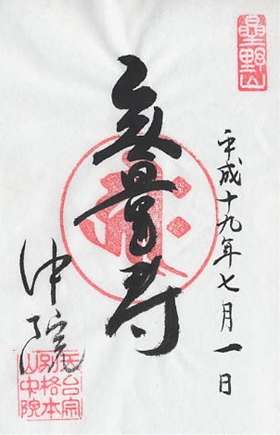 星野山
平成十九年七月一日
無量寿
中院
天台宗
別格本
山中院